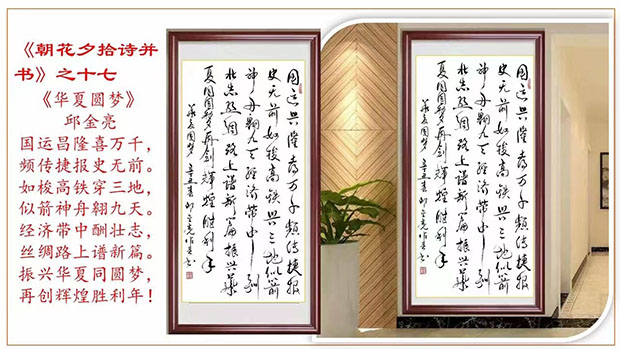 《朝花夕拾诗并
书》之十七
《华夏圆梦》
邱金亮
国运昌隆喜万千，
频传捷报史无前。
如梭高铁穿三地，
似箭神舟翱九天。
经济带中酬壮志，
丝绸路上谱新篇。
振兴华夏同圆梦，
再创辉煌胜利年！
国运兴隆喜万千频传捷报
史无前如梭高铁兴三地似箭
神舟翱九天经济带中酬
壮志丝绸路上谱新篇振兴华
夏同圆梦再创辉煌胜利年
华夏圆梦
国运兴隆喜万千频传捷报
史无前如梭高铁兴三地似箭
神舟翱九天经济带中酬
壮志丝绸路上谱新篇振兴华
夏同圆梦再创辉煌胜利年
华夏圆梦